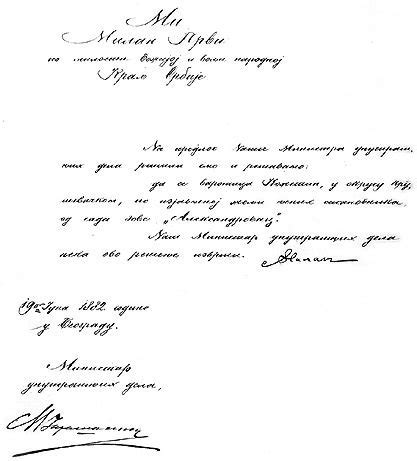 Ми
Милан Први
по милости Божијој и вољи народној
Краљ Србије
На предлог Нашег Министра унутраш-
њих дела решили смо и решавамо:
да се варошица Кожетин, у округу кру-
шевачком, по изјављеној жељи њених становника,
од сада зове „Александровац“.
Наш Министар унутрашњих дела
нека ово решење изврши.
Милан
19ог Јуна 1882 године
у Београду.
Министар
унутрашњих дела,